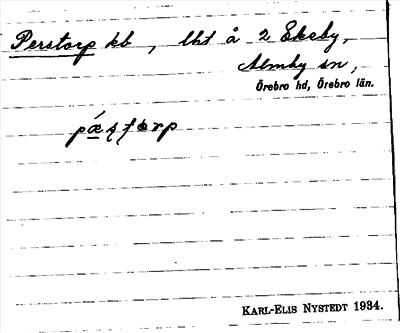 Perstorp kb, lht å 2 Ekeby,
Almby sn,
Örebro hd, Örebro län.
KARL-ELIS NYSTEDT 1934.